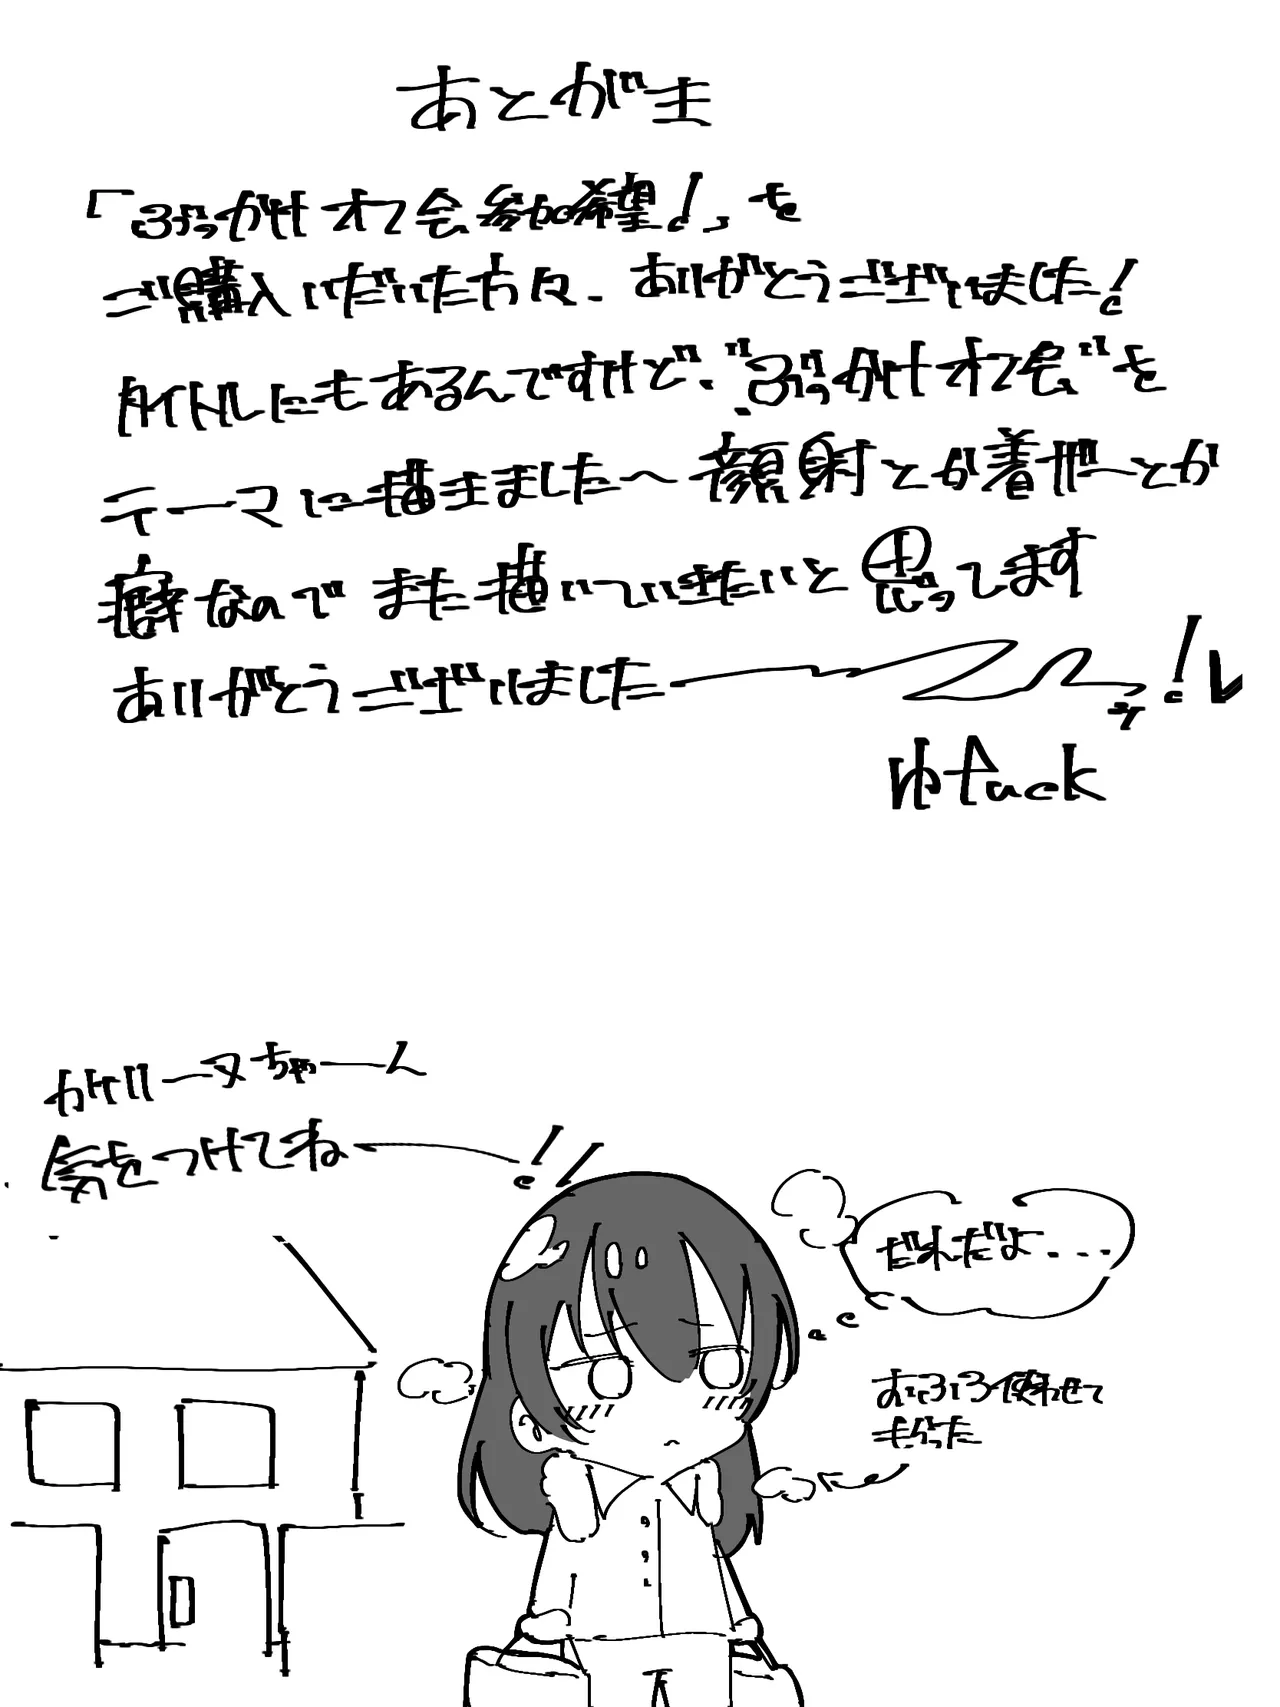 あとがき
「ぶっかけオフ会参加希望!」を
ご購入いただいた方々、ありがとうございました!
タイトルにもあるんですけど、"ぶっかけオフ会"を
テーマに描きました〜顔射とか着せーとか
癖なのでまた描いていきたいと思ってます
ありがとうございました
!
ゆtack
ガリーヌちゃーん
気をつけてねー!!
だれだよ...
おふろ使わせて
もらった